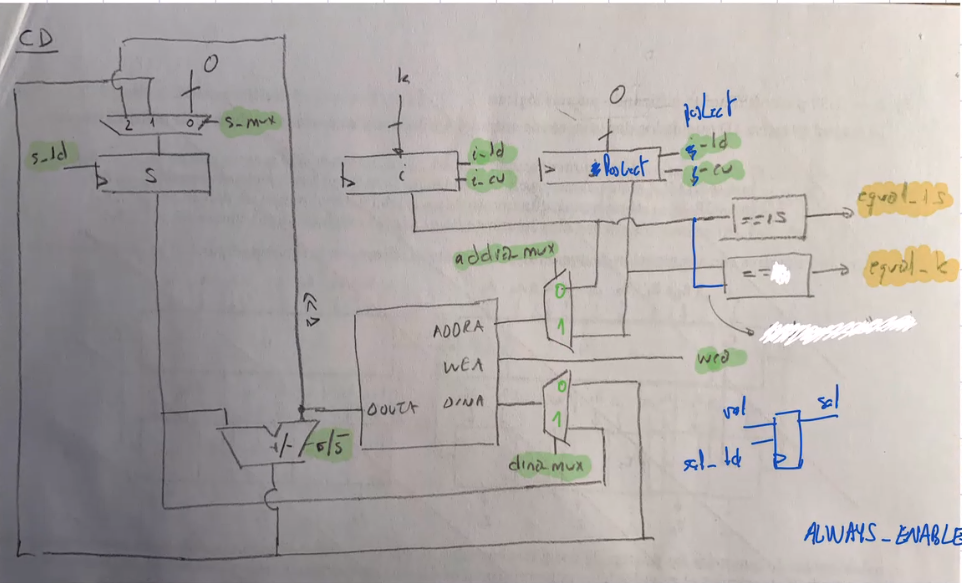 CD
0
2 1 0
s_mux
s_ld
S
k
i
i_ld
i_cu
0
PosLect
PosLect
-ld
-cu
==15
equal_15
==
equal_k
addra_mux
0
1
ADDRA
WEA
wea
DOUTA
DINA
0
1
dina_mux
+/-
val
sal
sal_ld
ALWAYS_ENABLE